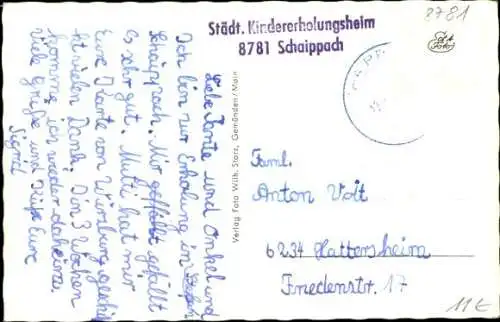 8781
Städt. Kindererholungsheim
8781 Schaippach
Liebe Tante und Onkel und
Ich bin zur Erholung in
Schaippach. Mir gefällt gefällt
es sehr gut. Mutti hat mir
Eure Karte von Würzburg
vielen Dank. In 3 Wochen
komme ich wieder daheim.
Viele Grüße und Küße Eure
Sigrid
Verlag Foto Wilh. Storz, Gemünden/Main
Foto
Faml.
Anton Voit
6234 Hattersheim
Friedenstr. 17
11€